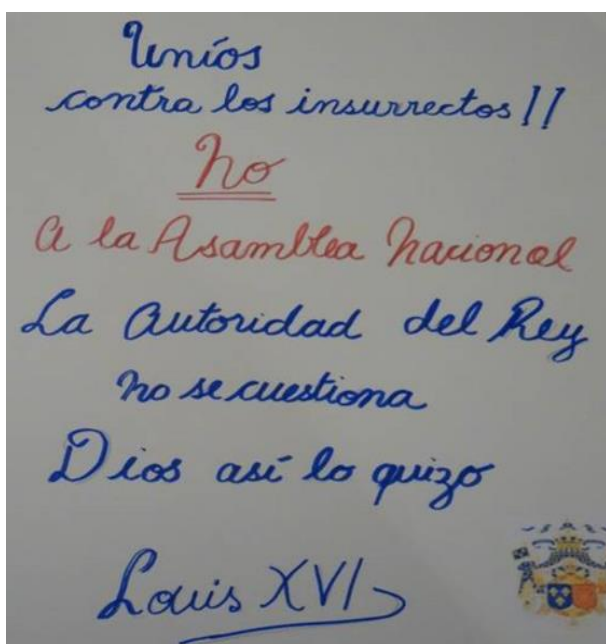 Uníos
contra los insurrectos!!
No
a la Asamblea Nacional
La autoridad del Rey
no se cuestiona
Dios así lo quizo
Louis XVI